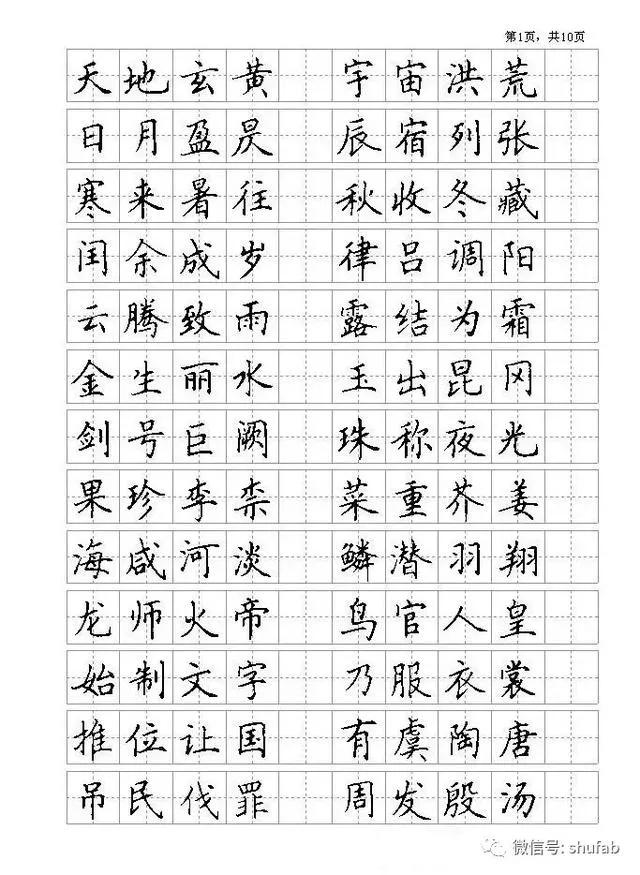 第1页，共10页
天地玄黄 宇宙洪荒
日月盈昃 辰宿列张
寒来暑往 秋收冬藏
闰余成岁 律吕调阳
云腾致雨 露结为霜
金生丽水 玉出昆冈
剑号巨阙 珠称夜光
果珍李柰 菜重芥姜
海咸河淡 鳞潜羽翔
龙师火帝 鸟官人皇
始制文字 乃服衣裳
推位让国 有虞陶唐
吊民伐罪 周发殷汤
微信号: shufab